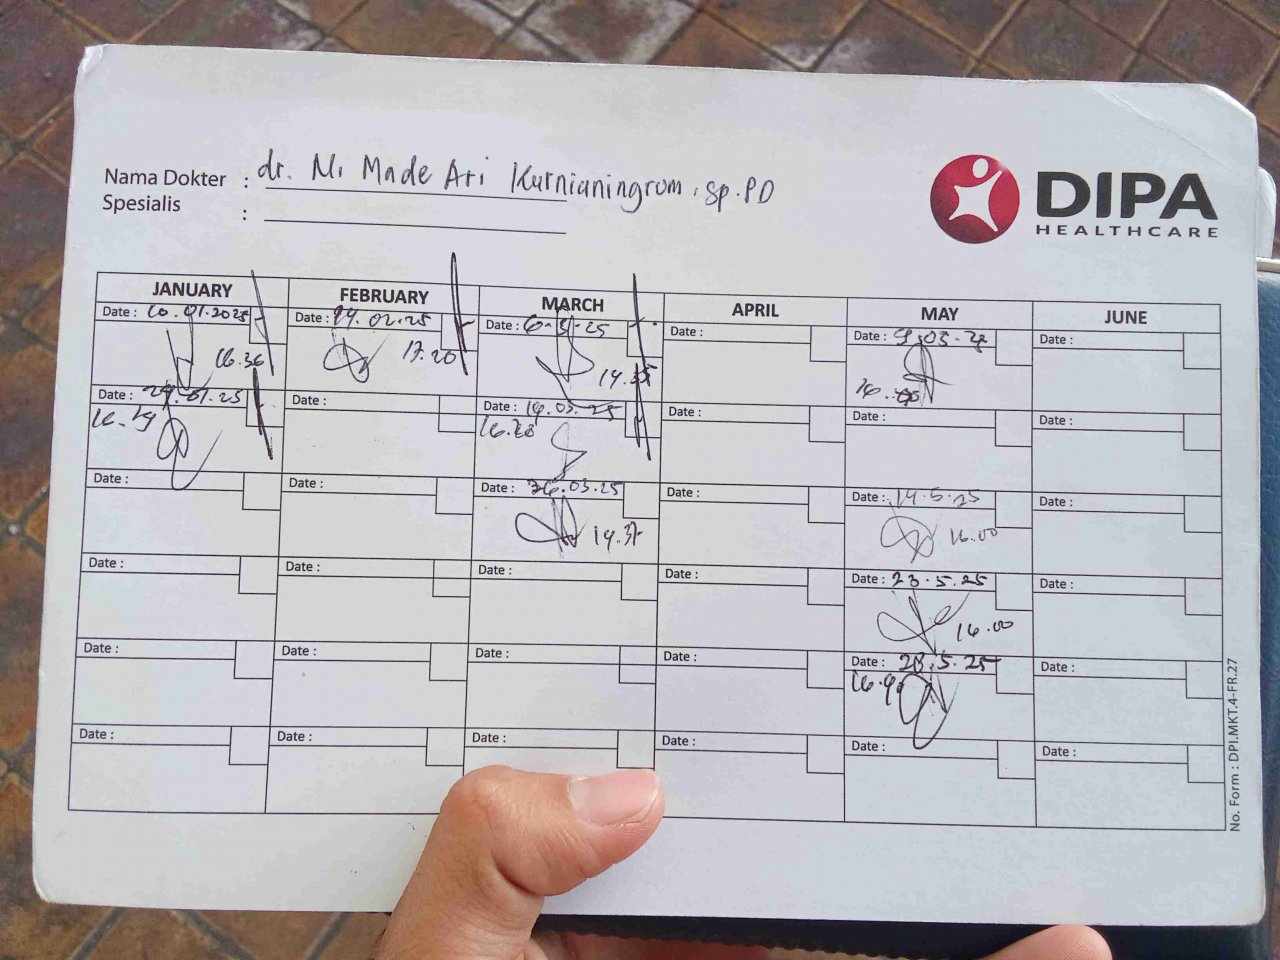 Nama Dokter : dr. Ni Made Ari Kurnianingrum, Sp.PD
Spesialis :
DIPA
HEALTHCARE
JANUARY FEBRUARY MARCH APRIL MAY JUNE
Date : 10.01.2025 Date : 19.02.25 Date : 6-3-25 Date : Date : Date :
16.36 17.20 14.35
Date : 29.01.25 Date : Date : 19.03.25 Date : Date : Date :
Date : Date : Date : 26.03.25 Date : Date : 19.5.25 Date :
14.37 16.00
Date : Date : Date : Date : Date : 23.5.25 Date :
16.00
Date : Date : Date : Date : Date : 28.5.25 Date :
Date : Date : Date : Date : Date : Date :
No. Form : DPI.MKT.4-FR.27